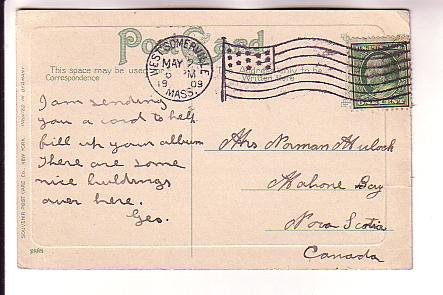 Post Card
This space may be used for Correspondence
Address only to be Written Here
WEST SOMERVILLE
MAY
6 PM
19 09
MASS.
I am sending
you a card to help
fill up your album
There are some
nice buildings
over here.
Geo.
Mrs Norman Mulock
Mahone Bay
Nova Scotia
Canada
SOUVENIR POST CARD CO. NEW YORK. PRINTED IN GERMANY.